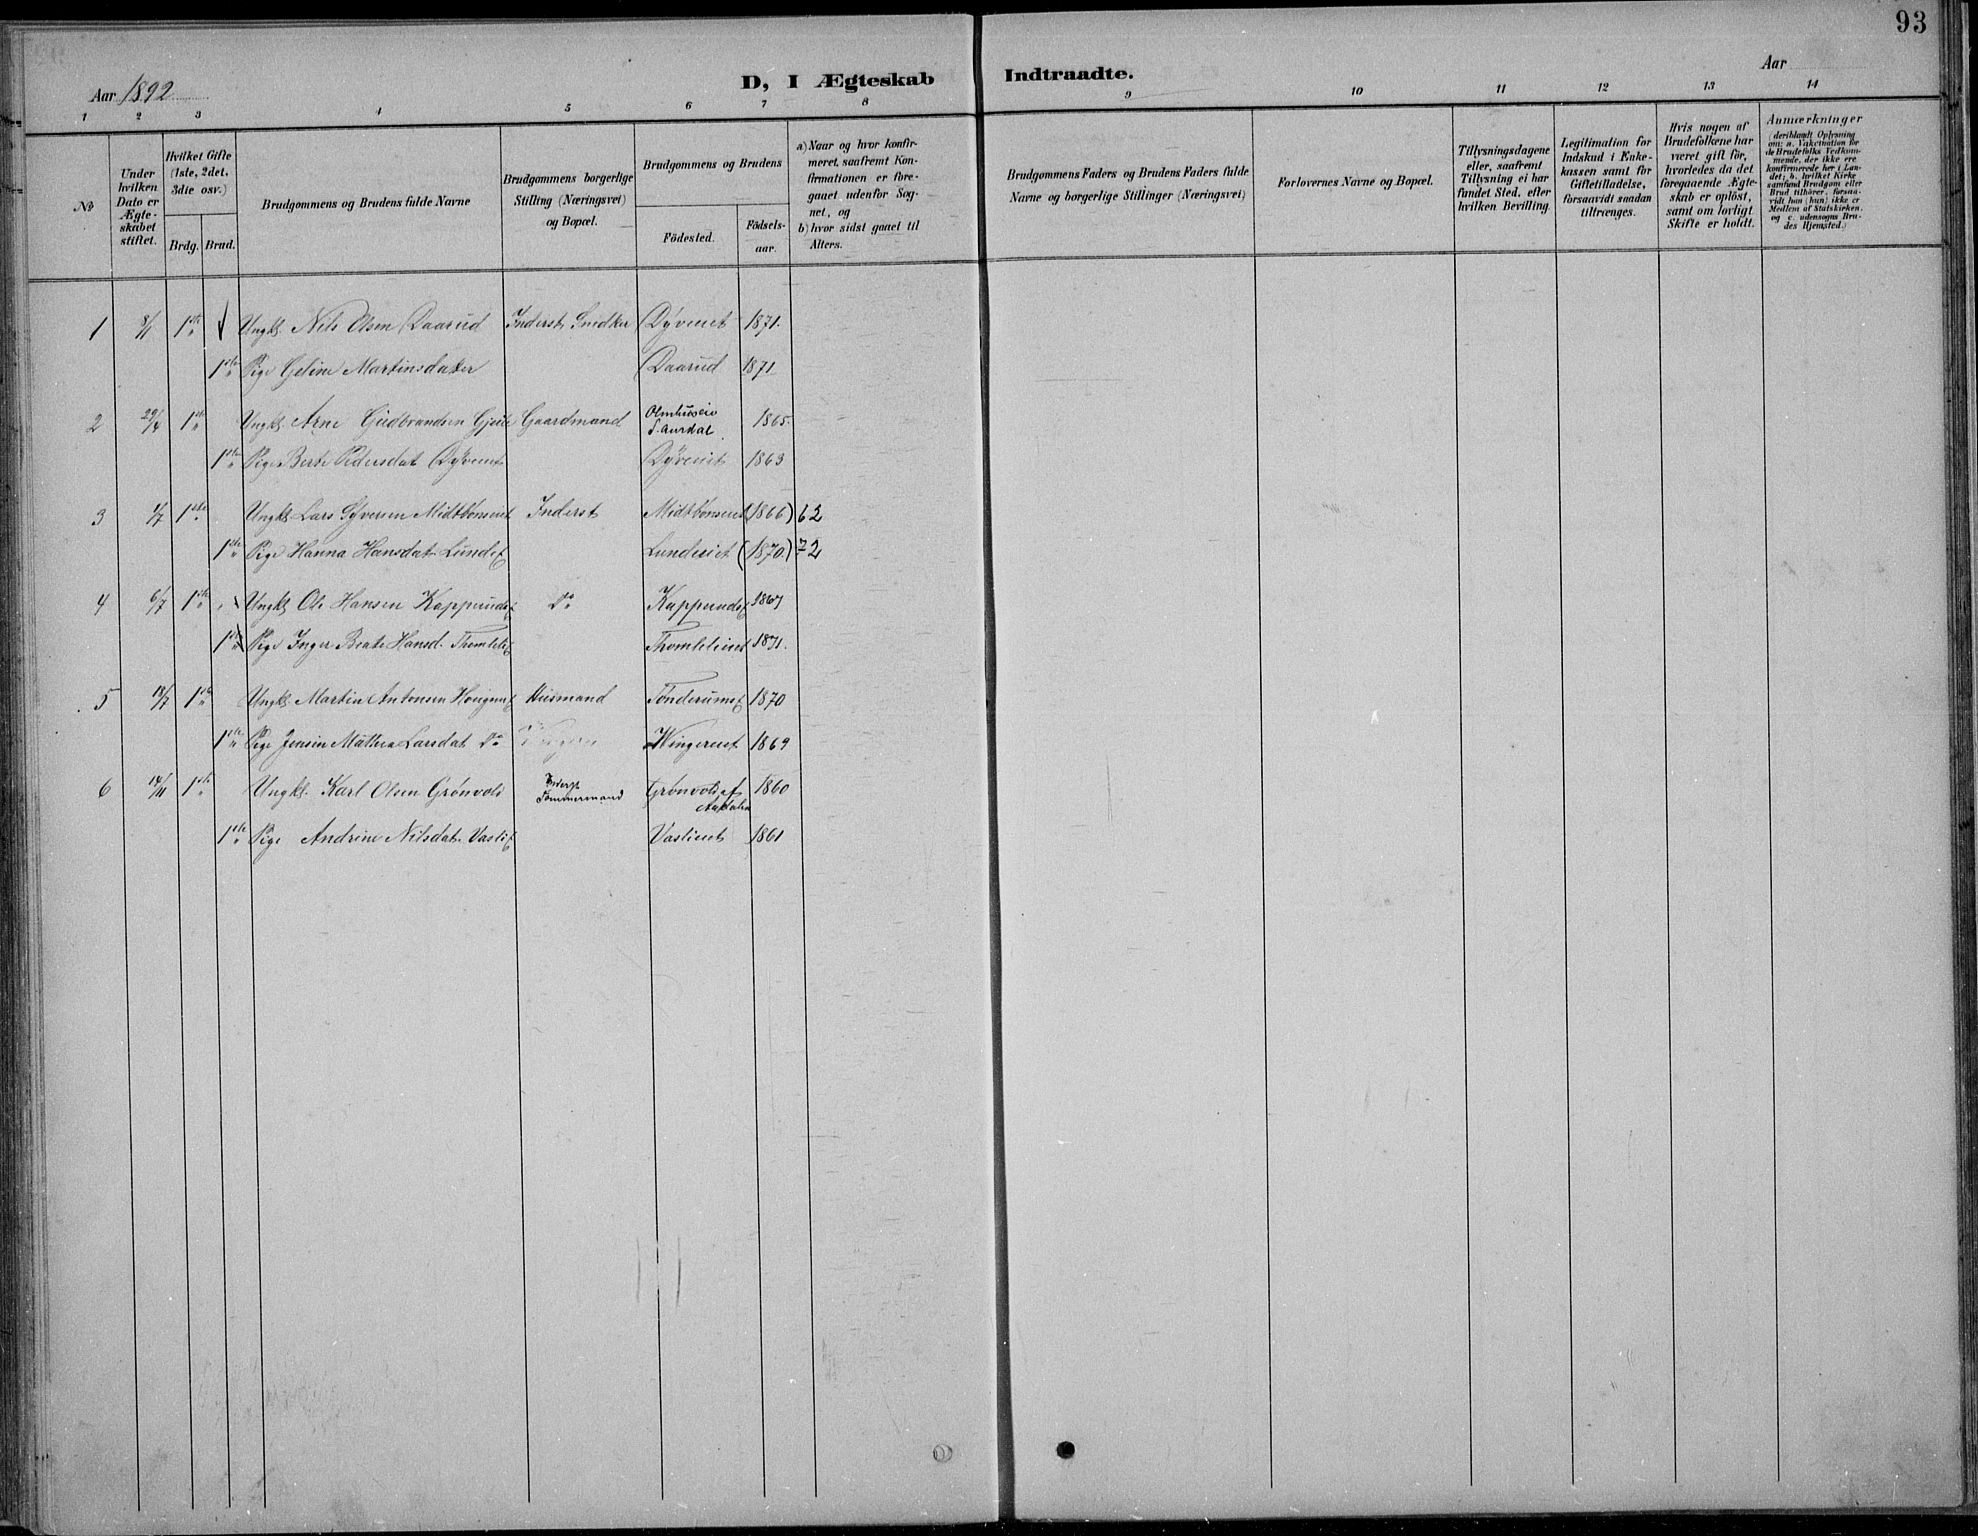 93
D, I Ægteskab Indtraadte.
Aar 1892
Aar
1 2 3 4 5 6 7 8 9 10 11 12 13 14
№
Under hvilken Dato er Ægteskabet stiftet.
Hvilket Gifte (1ste, 2det, 3die osv.)
Brdg. Brud.
Brudgommens og Brudens fulde Navne
Brudgommens borgerlige Stilling (Næringsvei) og Bopæl.
Brudgommens og Brudens
Födested.
Födsels-aar.
a) Naar og hvor konfirmeret, saafremt Konfirmationen er foregaaet udenfor Sognet, og
b) hvor sidst gaaet til Alters.
Brudgommens Faders og Brudens Faders fulde Navne og borgerlige Stillinger (Næringsvei)
Forlovernes Navne og Bopæl.
Tillysningsdagene eller, saafremt Tillysning ei har fundet Sted, efter hvilken Bevilling.
Legitimation for Indskud i Enkekassen samt for Giftetilladelse, forsaavidt saadan tiltrænges.
Hvis nogen af Brudefolkene har været gift för, hvorledes da det foregaaende Ægteskab er oplöst, samt om lovligt Skifte er holdt.
Anmærkninger
(deriblandt Oplysning om: a. Vakcination for de Brudefolks Vedkommende, der ikke ere konfirmerede her i Landet; b. hvilket Kirkesamfund Brudgom eller Brud tilhörer, forsaavidt han (hun) ikke er Medlem af Statskirken, og c. udensogns Brudes Hjemsted.)
1 8/1 1ste Ungkl. Nils Olsen Daarud Inderst, Snedker Dyveeiet 1871.
1ste Pige Geline Martinsdatter Daarud 1871
2 29/4 1ste Ungkl. Arne Gudbrandsen Gjeile Gaardmand Olmhuseie S. Aurdal 1865.
1ste Pige Berte Pedersdat Dyveeiet Dyveeiet 1863
3 1/7 1ste Ungkl. Lars Syversen Midtbönseiet Inderst Midtbönseiet (1866) 62
1ste Pige Hanna Hansdat. Lundej Lundeeiet (1870.) 72
4 6/7 1ste Ungkl. Ole Hansen Kapperudej Do Kapperudej 1867
1ste Pige Inger Beate Hansd. Thomlelej Thomleleiet 1871.
5 18/7 1ste Ungkl. Martin Antonsen Husmand Tönderumsej 1870
1ste Pige Jensin Mathea Larsdat Do Wingereiet 1869
6 14/11 1ste Ungkl. Karl Olsen Grönvold Inderst Tömmermand Grönvold af Aadalen 1860
1ste Pige Andrine Nilsdat. Vasliej Vaslieiet 1861